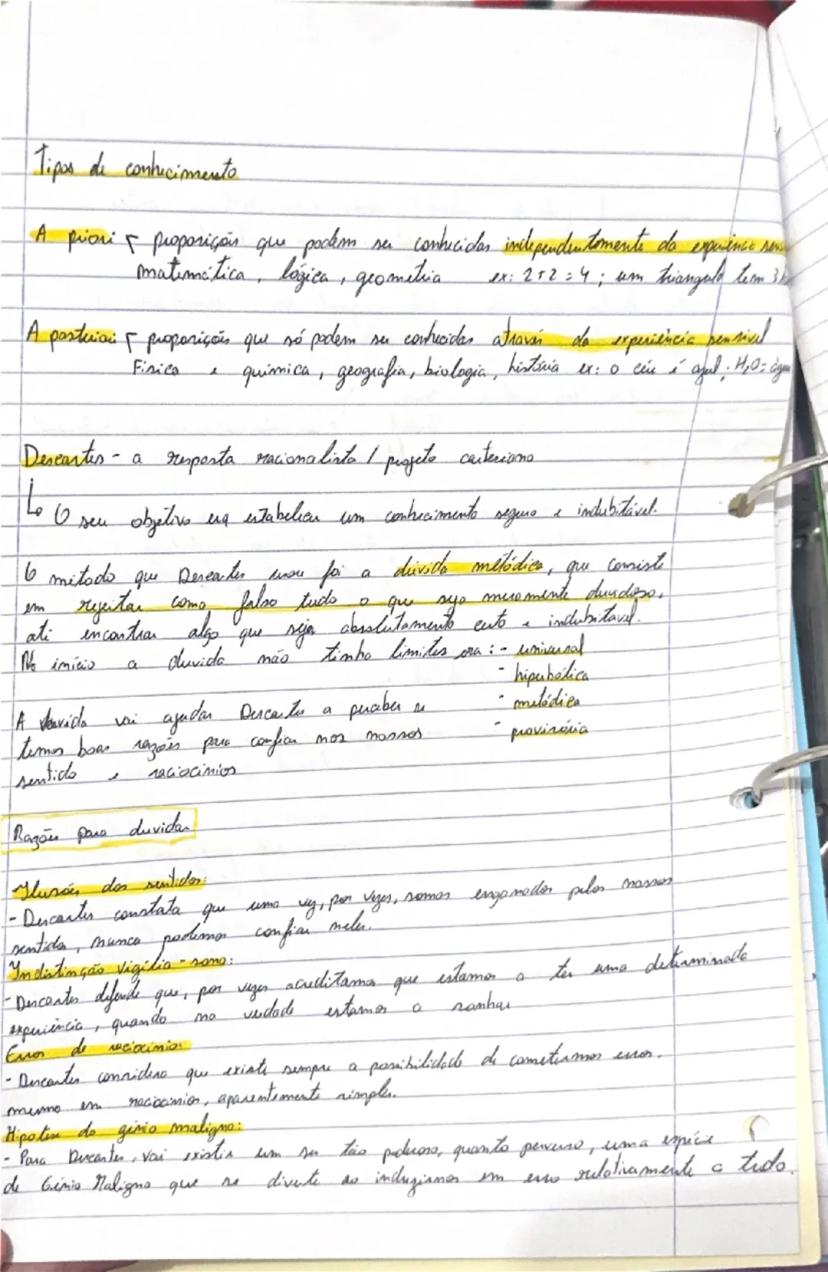 Tipos de conhecimento
A priori proposições que podem ser conhecidas independentemente da experiência
matemática, lógica, geometria ex: 2+2=4; um triangulo tem 3
A posteriori proposições que só podem ser conhecidas através da experiência sensivel
Fisica e quimica, geografia, biologia, história ex: o céu é azul; H2O=
Descartes - a resposta racionalista / projeto cartesiano
O seu objetivo era estabelecer um conhecimento seguro e indubitável.
O método que Descartes usou foi a dúvida metódica, que consiste
em rejeitar como falso tudo o que seja meramente duvidoso,
até encontrar algo que seja absolutamente certo e indubitavel.
No início a duvida não tinha limites era: - universal
- hiperbólica
- metódica
- provisória
A duvida vai ajudar Descartes a perceber se
temos boas razões para confiar nos nossos
sentido e raciocinios
Razões para duvidar
Ilusões dos sentidos:
- Descartes constata que uma vez, por vezes, somos enganados pelos nossos
sentidos, nunca podemos confiar neles.
Indistinção vigília - sono:
- Descartes defende que, por vezes acreditamos que estamos a ter uma determinada
experiência, quando na verdade estamos a sonhar
Erros de raciocinio:
- Descartes considera que existe sempre a possibilidade de cometermos erros.
mesmo em raciocinios, aparentemente simples.
Hipotese do génio maligno:
- Para Descartes, vai existir um ser tão poderoso, quanto perverso, uma espécie
de Génio Maligno que se diverte ao induzirmos em erro relativamente a tudo.